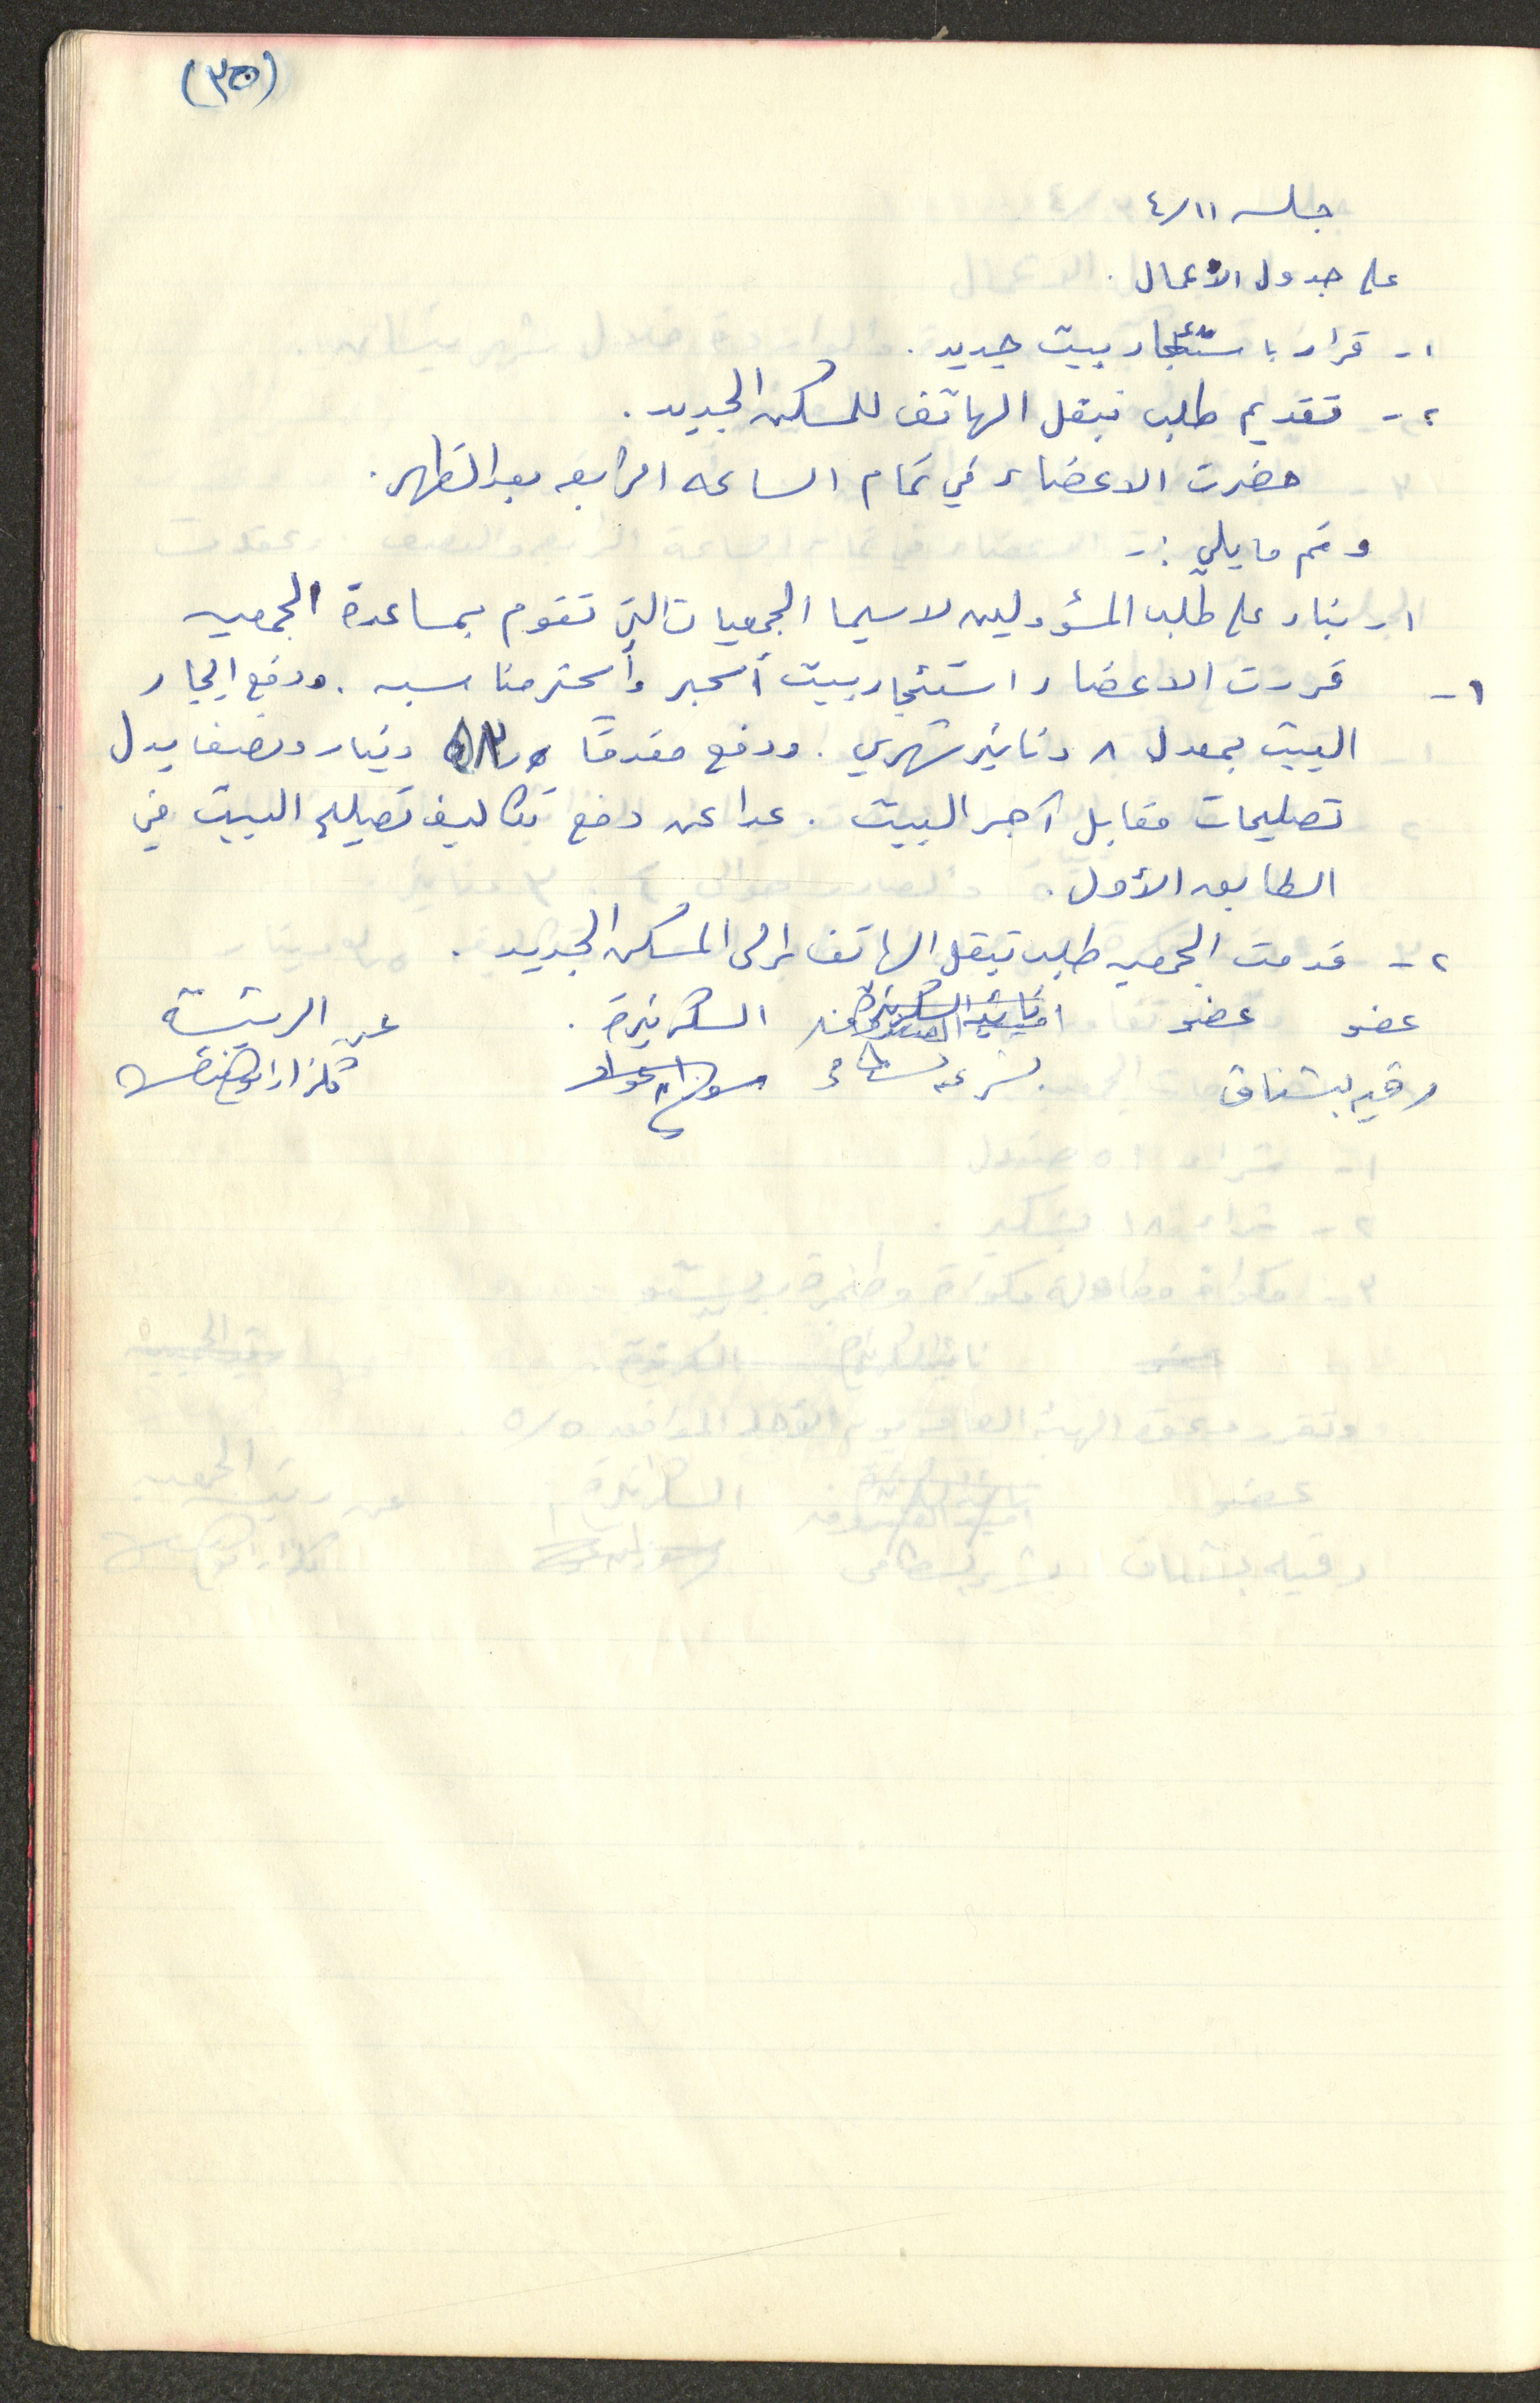 (٣٥)
جلسه ٤/١١
على جدول الأعمال .
١- قرار باستئجار بيت جديد .
٢- تقديم طلب نبقل الهاتف للمسكن الجديد .
حضرت الاعضاء في تمام الساعه الرابعه بعد الظهر .
وتم ما يلي :-
بناء على طلب المسؤولين لاسيما الجمعيات التي تقوم بمساعدة الجمعيه
١- قررت الاعضاء استئجار بيت أكبر وأكثر مناسبه . ودفع ايجار
البيت بمعدل ٨ دنانير شهري . ودفع مقدمًا دينار ونصف بدل
تصليحات مقابل آجر البيت . عدا عن دفع تكاليف تصليح البيت في
الطابق الأول .
٢- قدمت الجمعيه طلب تبقل الهاتف إلى المسكن الجديد .
عضو عضو امينة الصندوق السكرتيرة . عن الرئيسة
رقيه بشناق يسرى